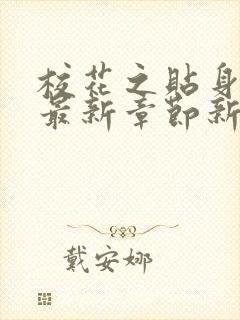 校花之貼身
最新章節新
戴安娜